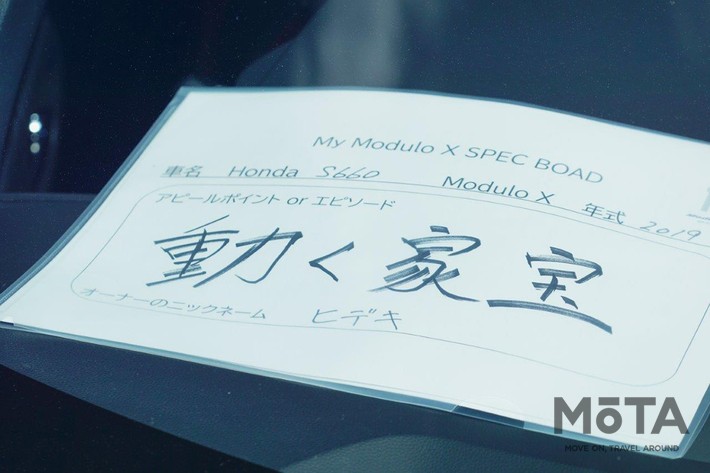 My Modulo X SPEC BOAD
車名 Honda S660 Modulo X 年式 2019
アピールポイント or エピソード
動く家宝
オーナーのニックネーム ヒデキ
MōTA
MOVE ON, TRAVEL AROUND